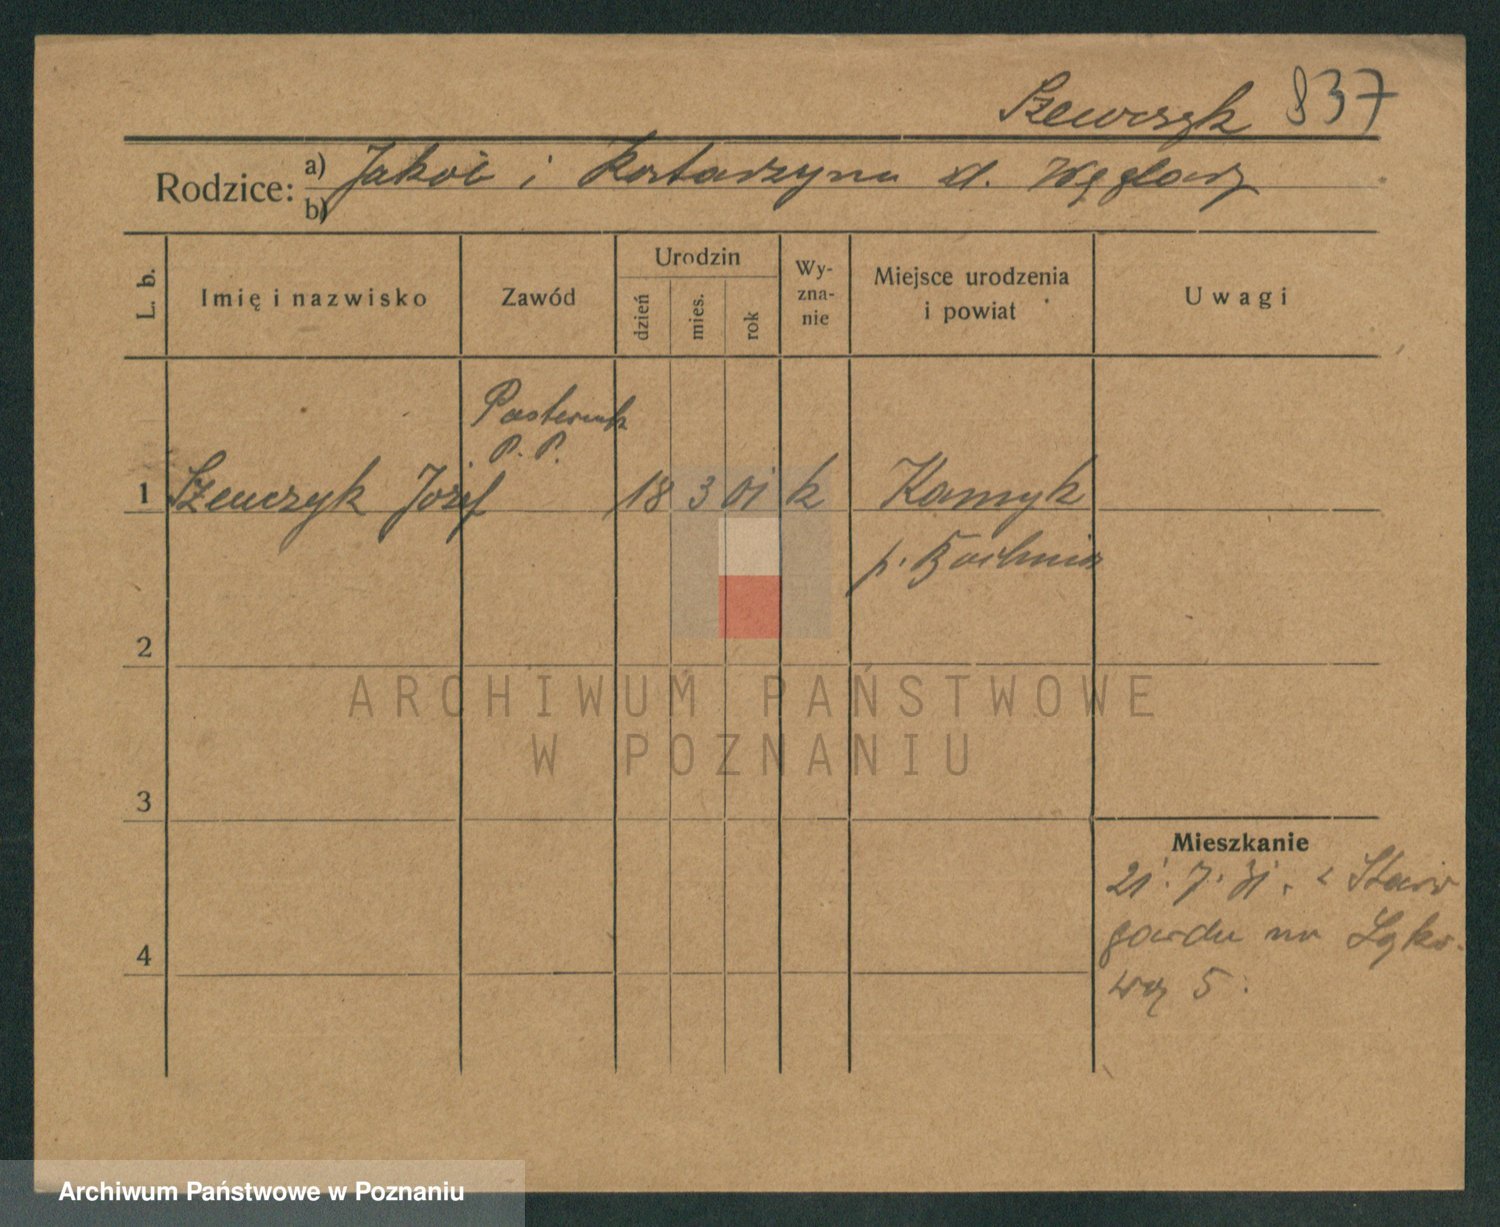 Szewczyk 837
Rodzice: a) Jakób i Katarzyna d. Węglarz
b)
L. b. Imię i nazwisko Zawód Urodzin dzień mies. rok Wyznanie Miejsce urodzenia i powiat Uwagi
Posterunk
P. P.
1 Szewczyk Józef 18 3 01 k Kamyk
p. Bochnia
2
ARCHIWUM PAŃSTWOWE
W POZNANIU
3
Mieszkanie
21. 7. 31. z Staro
gardu na Łąko-
wą 5.
4
Archiwum Państwowe w Poznaniu